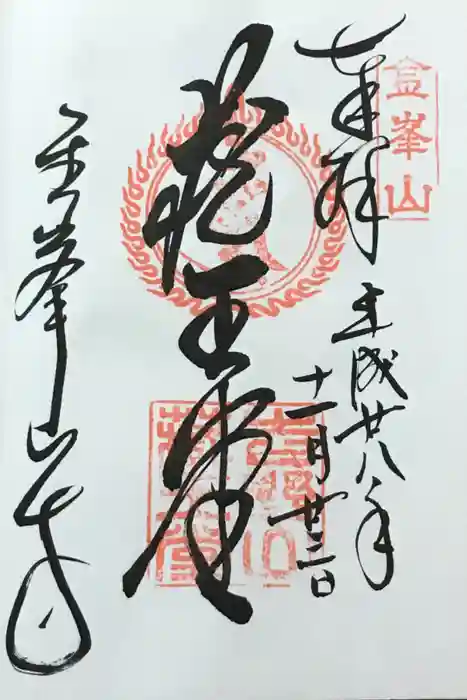 金峯山
奉拝
平成廿八年
十一月廿三日
蔵王堂
金峯山寺